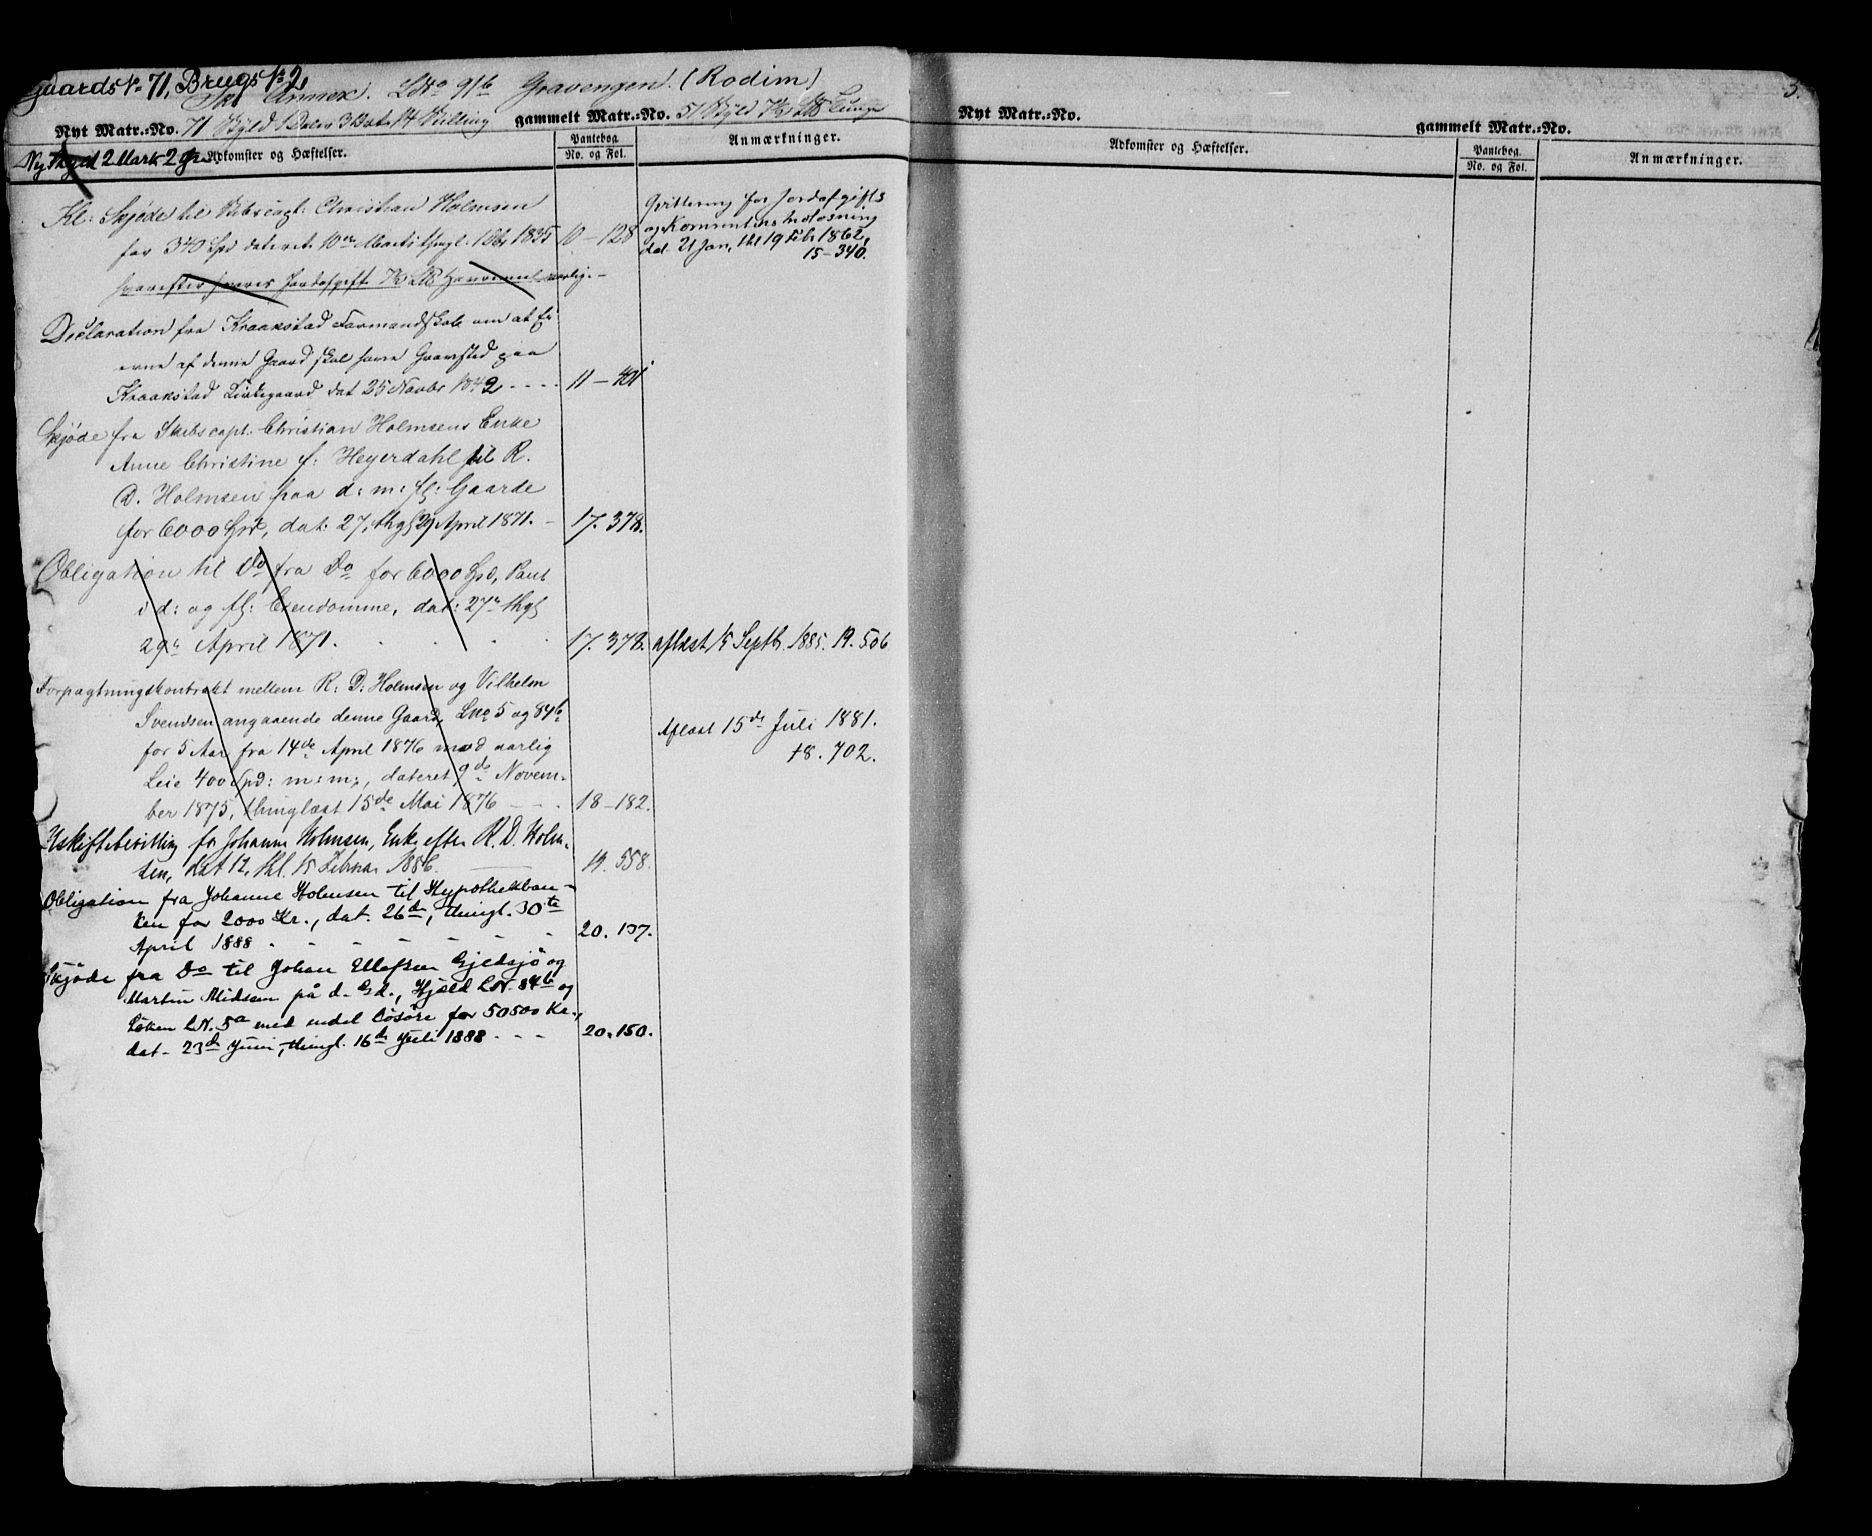 Gaards No 71, Brugs No 2,
Ski Annex. LNo 91b Gravengen. (Rodim)
Nyt Matr.-No. 71 Skyld 1 Daler 3 Ort 14 Skilling gammelt Matr.-No. 51 Skyld
Ny Skyld 2 Mark 2 Øre
Adkomster og Hæftelser. Pantebog. No. og Fol. Anmærkninger.
Kl: Skjøde til Skibscapt: Christian Holmsen
for 340 Spd dateret 10de Marts thingl. 1835 10 – 128
hvorefter svares Jordafgift aarlig. –
Qvittering for Jordafgifts
og Kornrentens Indløsning
dat. 21 Jan, thl 19 Feb. 1862,
15 – 340.
Declaration fra Kraakstad Formandskab om at Ei-
erne af denne Gaard skal have Gravsted paa
Kraakstad Kirkegaard dat 25 Novbr 1842 - - - - 11 – 401
Skjøde fra Skibscapt: Christian Holmsens Enke
Anne Christine f: Heyerdahl til R.
D. Holmsen paa d: m: fl: Gaarde
for 6000 Spd, dat: 27, thgl 29 April 1871. – 17. 378.
Obligation til Do fra Do for 6000 Spd, Pant
i d: og fl: Eiendomme, dat: 27de thgl
29de April 1871. 17. 378. aflæst 15 Septb. 1885. 19. 506
Forpagtningskontrakt mellem R: D: Holmsen og Vilhelm
Svendsen angaaende denne Gaard, Lno 5 og 84b
for 5 Aar fra 14de April 1876 mod aarlig
Leie 400 Spd: m: m:, dateret 9de Novem-
ber 1875, thinglæst 15de Mai 1876 - - - 18 – 182.
Aflæst 15de Juli 1881.
18. 702.
Uskiftebevilling for Johanne Holmsen, Enke efter R. D. Holm-
sen, dat 12, thl. 15 Februar 1886. 19. 558.
Obligation fra Johanne Holmsen til Hypothekban-
ken for 2000 Kr., dat. 26de, thingl. 30te
April 1888 - - - - - - 20. 107.
Skjøde fra Do til Johan Ellefsen Gjedsjö og
Martin Midsem på d. Gd., Hjæld LN. 84b og
Löken LN. 5a med endel Lösöre for 50500 Kr.,
dat. 23de Juni, thingl. 16de Juli 1888 - - - 20. 150.
5.
Nyt Matr.-No. gammelt Matr.-No.
Adkomster og Hæftelser. Pantebog. No. og Fol. Anmærkninger.